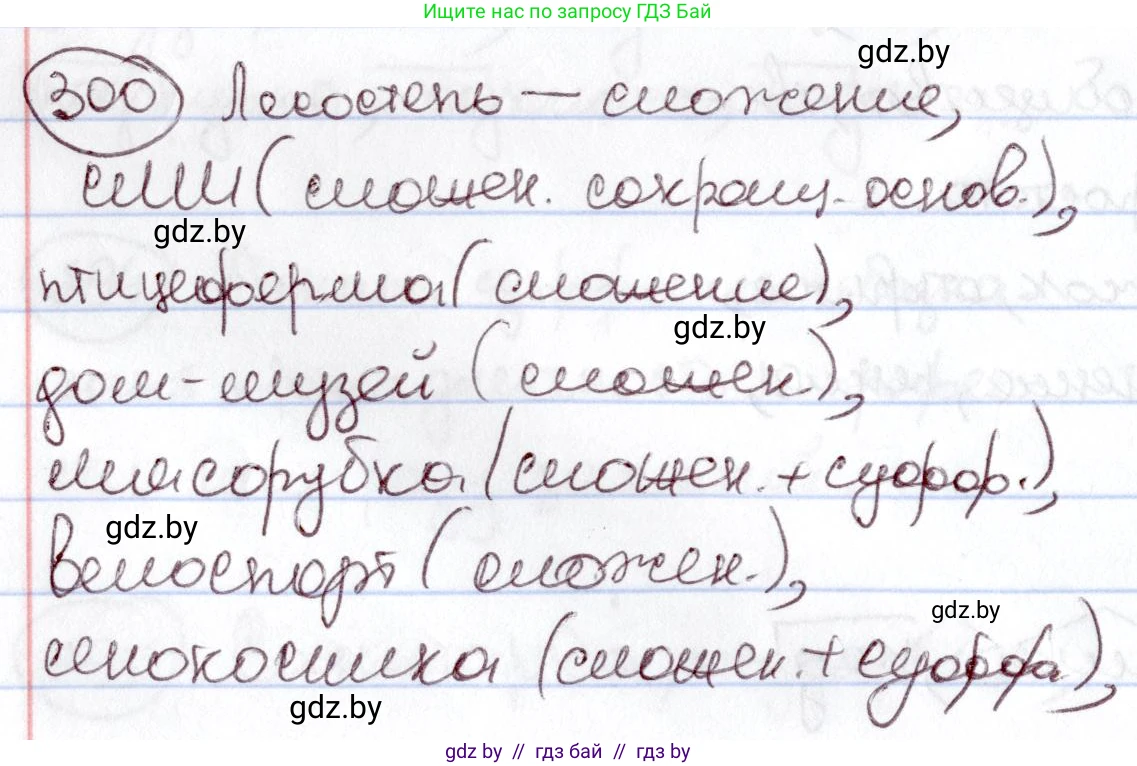 Ищите нас по запросу ГДЗ Бай
gdz.by
300 Лесостепь — сложение,
СМИ (сложен. сокращ. основ.),
gdz.by
птицеферма (сложение),
gdz.by
дом-музей (сложен),
мясорубка (сложен. + суфф.),
gdz.by
велоспорт (сложен.),
gdz.by
сенокосилка (сложен. + суффа),
gdz.by
gdz.by // гдз бай // гдз by